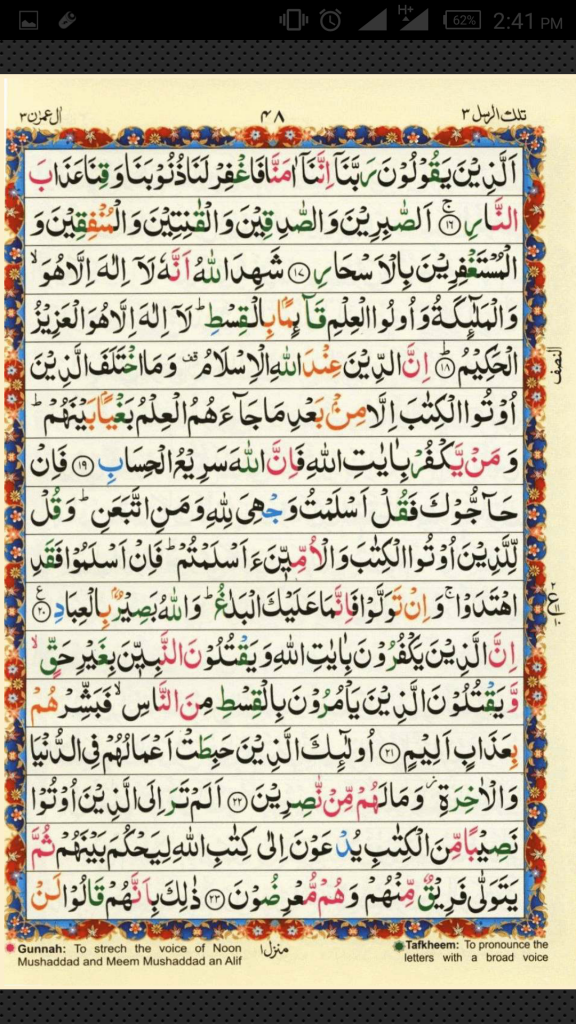 62% 2:41 PM
تلك الرسل ٣
٤٨
اٰل عمرٰن ٣
اَلَّذِيْنَ يَقُوْلُوْنَ رَبَّنَاۤ اِنَّنَاۤ اٰمَنَّا فَاغْفِرْ لَنَا ذُنُوْبَنَا وَقِنَا عَذَابَ
النَّارِ ۚ ﴿١٦﴾ اَلصّٰبِرِيْنَ وَالصّٰدِقِيْنَ وَالْقٰنِتِيْنَ وَالْمُنْفِقِيْنَ وَ
الْمُسْتَغْفِرِيْنَ بِالْاَسْحَارِ ﴿١٧﴾ شَهِدَ اللّٰهُ اَنَّهٗ لَاۤ اِلٰهَ اِلَّا هُوَ ۙ
وَالْمَلٰٓئِكَةُ وَاُولُوا الْعِلْمِ قَآئِمًۢا بِالْقِسْطِ ؕ لَاۤ اِلٰهَ اِلَّا هُوَ الْعَزِيْزُ
الْحَكِيْمُ ؕ ﴿١٨﴾ اِنَّ الدِّيْنَ عِنْدَ اللّٰهِ الْاِسْلَامُ قف وَمَا اخْتَلَفَ الَّذِيْنَ
اُوْتُوا الْكِتٰبَ اِلَّا مِنْۢ بَعْدِ مَا جَآءَهُمُ الْعِلْمُ بَغْيًۢا بَيْنَهُمْ ؕ
وَمَنْ يَّكْفُرْ بِاٰيٰتِ اللّٰهِ فَاِنَّ اللّٰهَ سَرِيْعُ الْحِسَابِ ﴿١٩﴾ فَاِنْ
حَآجُّوْكَ فَقُلْ اَسْلَمْتُ وَجْهِيَ لِلّٰهِ وَمَنِ اتَّبَعَنِ ؕ وَقُلْ
لِّلَّذِيْنَ اُوْتُوا الْكِتٰبَ وَالْاُمِّيّٖنَ ءَاَسْلَمْتُمْ ؕ فَاِنْ اَسْلَمُوْا فَقَدِ
اهْتَدَوْا ۚ وَاِنْ تَوَلَّوْا فَاِنَّمَا عَلَيْكَ الْبَلٰغُ ؕ وَاللّٰهُ بَصِيْرٌۢ بِالْعِبَادِ ﴿٢٠﴾ ع
اِنَّ الَّذِيْنَ يَكْفُرُوْنَ بِاٰيٰتِ اللّٰهِ وَيَقْتُلُوْنَ النَّبِيّٖنَ بِغَيْرِ حَقٍّ ۙ
وَّيَقْتُلُوْنَ الَّذِيْنَ يَاْمُرُوْنَ بِالْقِسْطِ مِنَ النَّاسِ ۙ فَبَشِّرْهُمْ
بِعَذَابٍ اَلِيْمٍ ﴿٢١﴾ اُولٰٓئِكَ الَّذِيْنَ حَبِطَتْ اَعْمَالُهُمْ فِي الدُّنْيَا
وَالْاٰخِرَةِ ز وَمَا لَهُمْ مِّنْ نّٰصِرِيْنَ ﴿٢٢﴾ اَلَمْ تَرَ اِلَى الَّذِيْنَ اُوْتُوْا
نَصِيْبًا مِّنَ الْكِتٰبِ يُدْعَوْنَ اِلٰى كِتٰبِ اللّٰهِ لِيَحْكُمَ بَيْنَهُمْ ثُمَّ
يَتَوَلّٰى فَرِيْقٌ مِّنْهُمْ وَهُمْ مُّعْرِضُوْنَ ﴿٢٣﴾ ذٰلِكَ بِاَنَّهُمْ قَالُوْا لَنْ
النصف
٢
ع
١١
١٠
Gunnah: To strech the voice of Noon
Mushaddad and Meem Mushaddad an Alif
منزل ١
Tafkheem: To pronounce the
letters with a broad voice